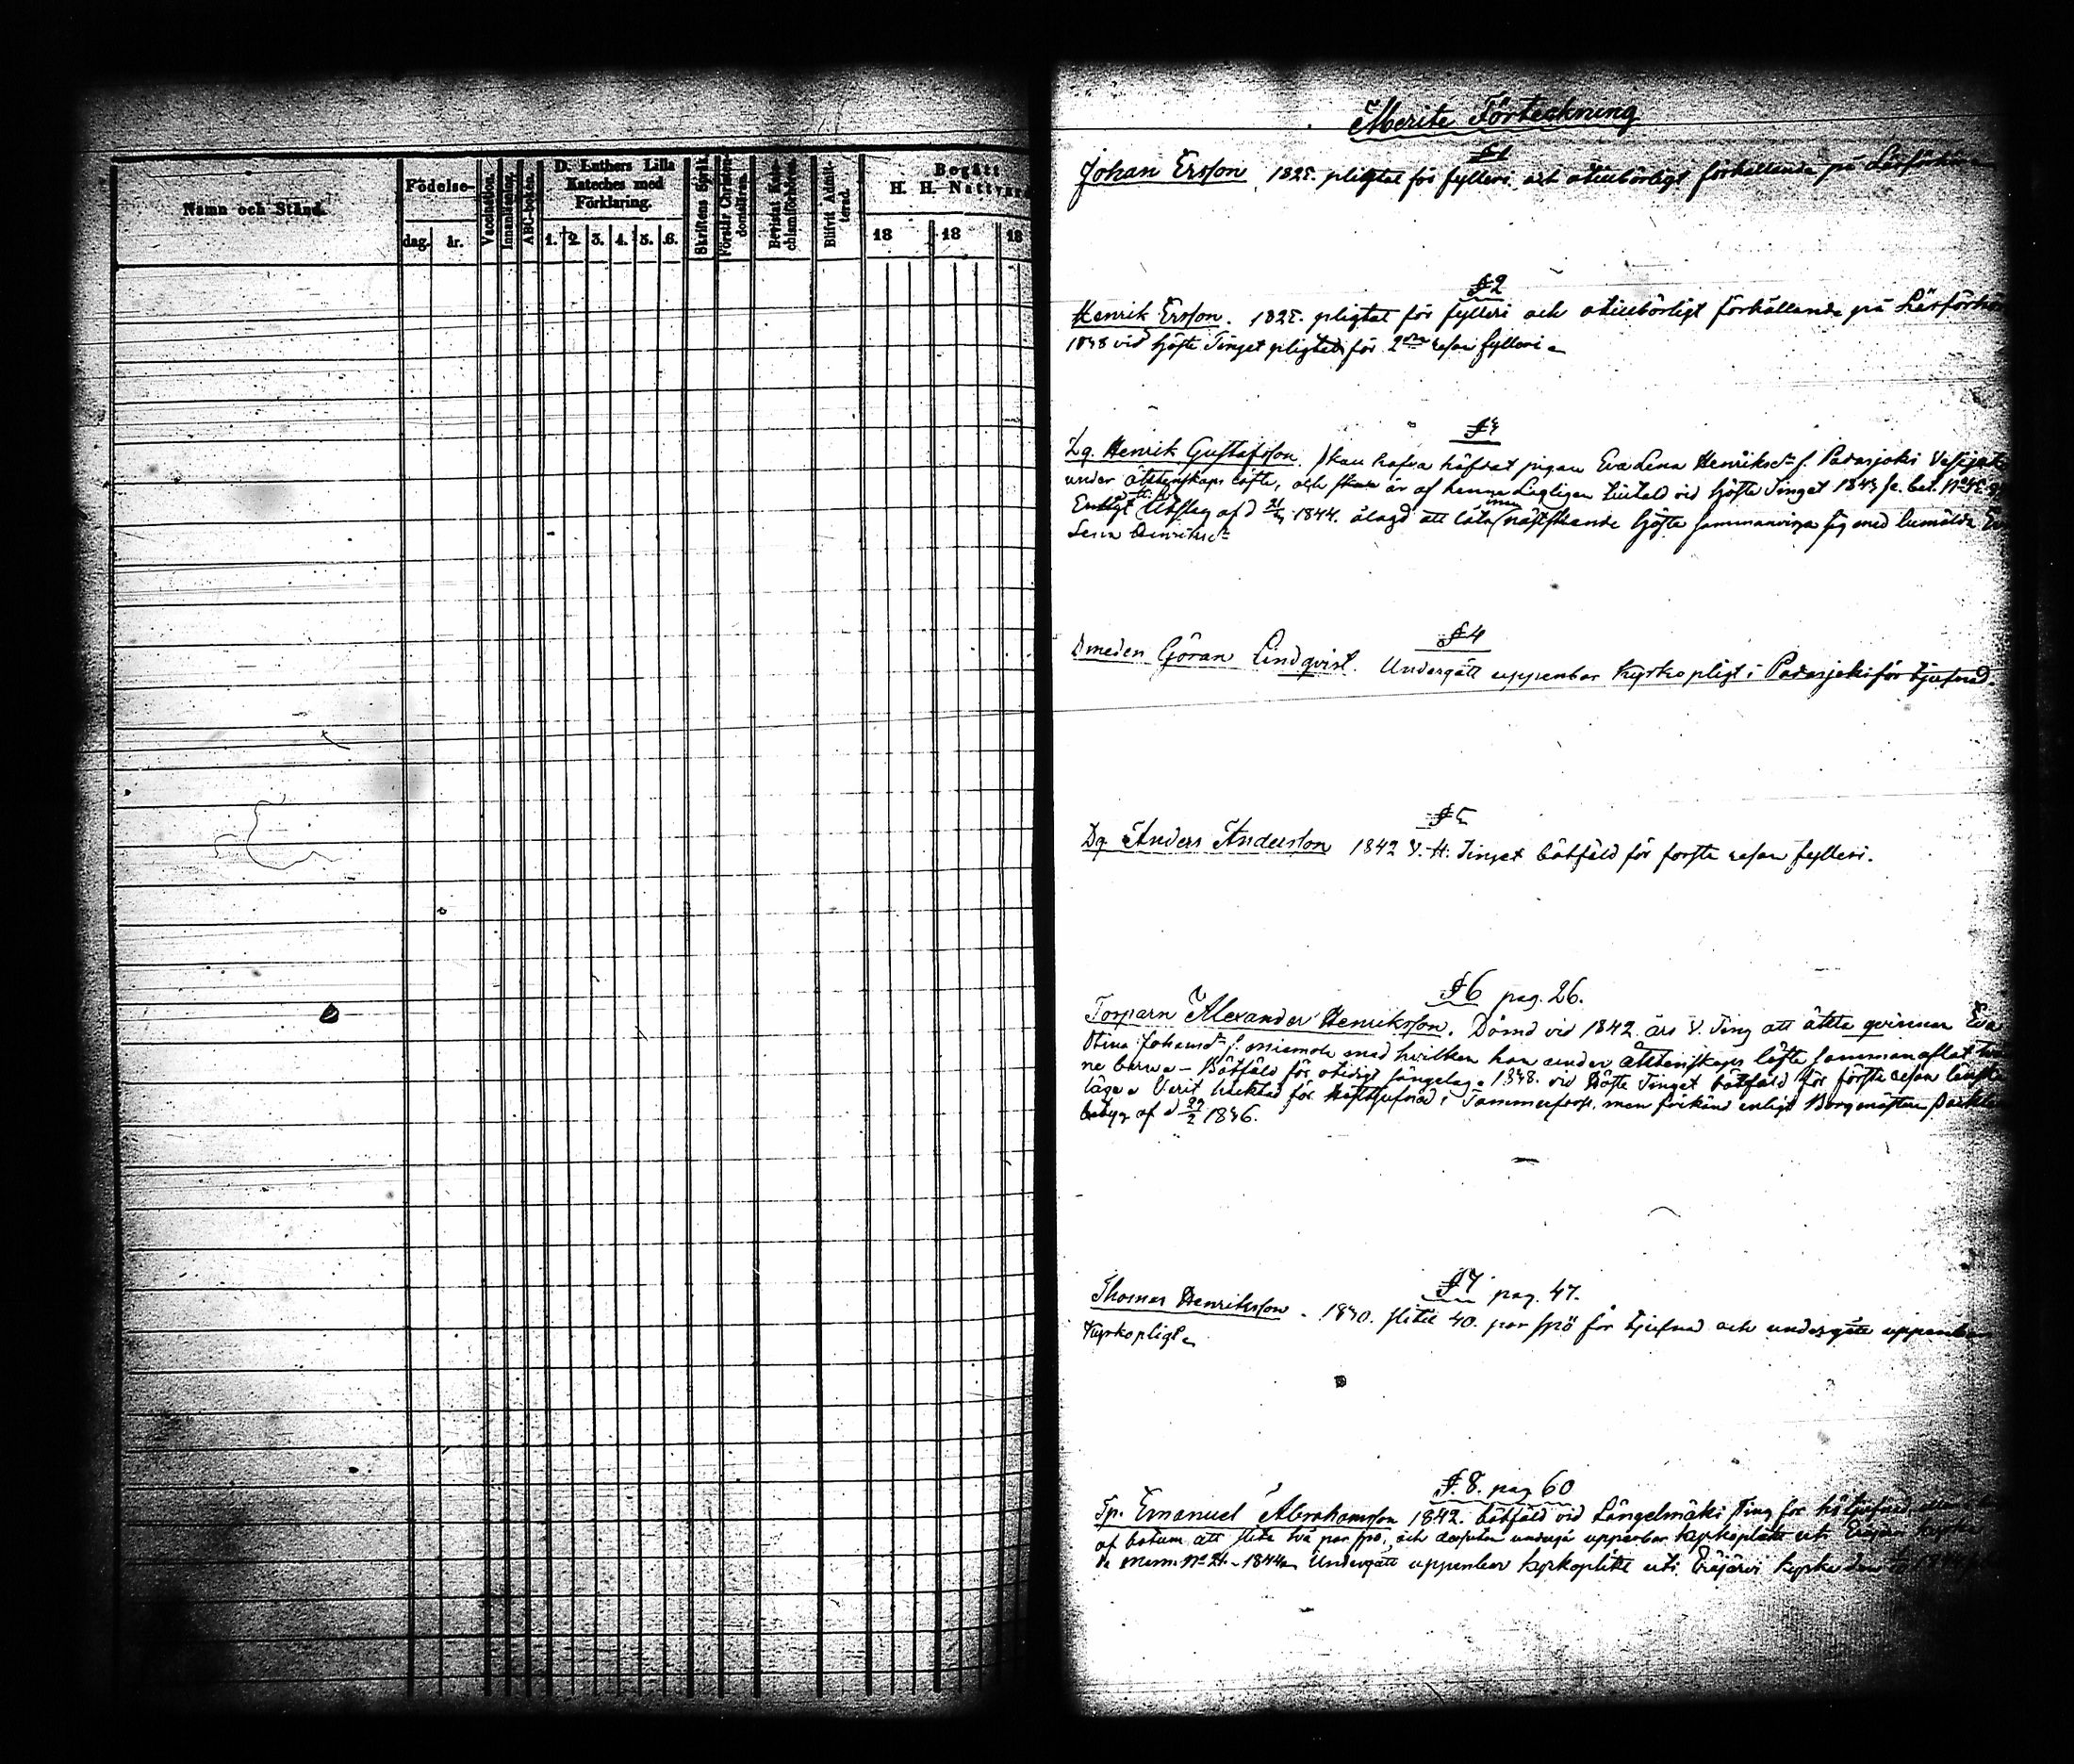 Namn och Stånd.
Födelse-
dag. år.
Vaccination.
Innanläsning.
ABC-boken.
D. Luthers Lilla
Kateches med
Förklaring.
1. 2. 3. 4. 5. 6.
Skriftens Språk.
Förstår Christen-
domsläran.
Bevistat Kate-
chismiförhören.
Blifvit Admit-
terad.
Begått
H. H. Nattvard
18 18 18
Merite Förteckning
§ 1
Johan Ersson, 1825. pligtat för fylleri och otillbörligt förhållande på
§ 2
Henrik Ersson. 1825. pligtat för fylleri och otillbörligt förhållande på Läsförhör
1838 vid Höste Tinget pligtat för 2dra resan fylleri
§ 3
Henrik Gustafsson. skall hafva häfdat pigan Eva Lena Henriksdr f. Padasjoki
under äktenskaps löfte, och är af henne Lagligen tilltald vid Höste Tinget 1843
Enligt Utslag af d 1844. ålagd att låta näststkande Höste sammanviga sig med bemälde
Lena Henriksdr
§ 4
Smeden Göran Lindqvist. Undergått uppenbar Kyrkopligt i Padasjoki för tjufnad.
§ 5
Dg. Anders Andersson 1842 V. H. Tinget bötfäld för forsta resan fylleri.
§ 6 pag. 26.
Torparn Alexander Henriksson. Dömd vid 1842 års V. Ting att äkta qvinnan Eva
Stina Johansdr f. med hvilken han under äktenskaps löfte sammanaflat
ne barn - Bötfäld för otidigt sängelag. 1838. vid Höste Tinget bötfäld för första resan
läge. Varit häktad för tjufnad i Tammerfors, men frikänd enligt Borgmästare
betyg af d 22/2 1846.
§ 7 pag. 47.
Thomas Henriksson. 1840. slitit 40. par spö för tjufnad och undergått uppenbar
Kyrkopligt
§. 8. pag 60
Tp. Emanuel Abrahamsson 1842. bötfäld vid Längelmäki Ting för
af botum att slita två par spö, och dessutom undergå uppenbar kyrkoplikt uti Eräjärvi
No 21. 1844 Undergått uppenbar kyrkoplikt uti Eräjärvi kyrka den